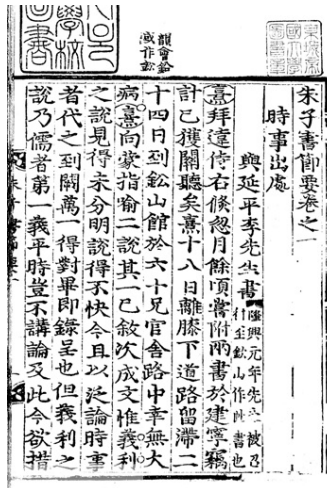 韻會鉛
或作鈆
朱子書節要卷之一
時事出處
與延平李先生書 隆興元年先生被召
行至鈆山作此書也
熹拜違侍右倐忽月餘頃嘗附兩書於建寧竊
計已獲關聽矣熹十八日離膝下道路留滯二
十四日到鈆山館於六十兄官舍路中幸無大
病熹向蒙指喻二說其一已敘次成文惟義利
之說見得未分明說得不快今且以泛論時事
者代之到闕萬一得對畢即錄呈也但義利之
說乃儒者第一義平時豈不講論及此今欲措